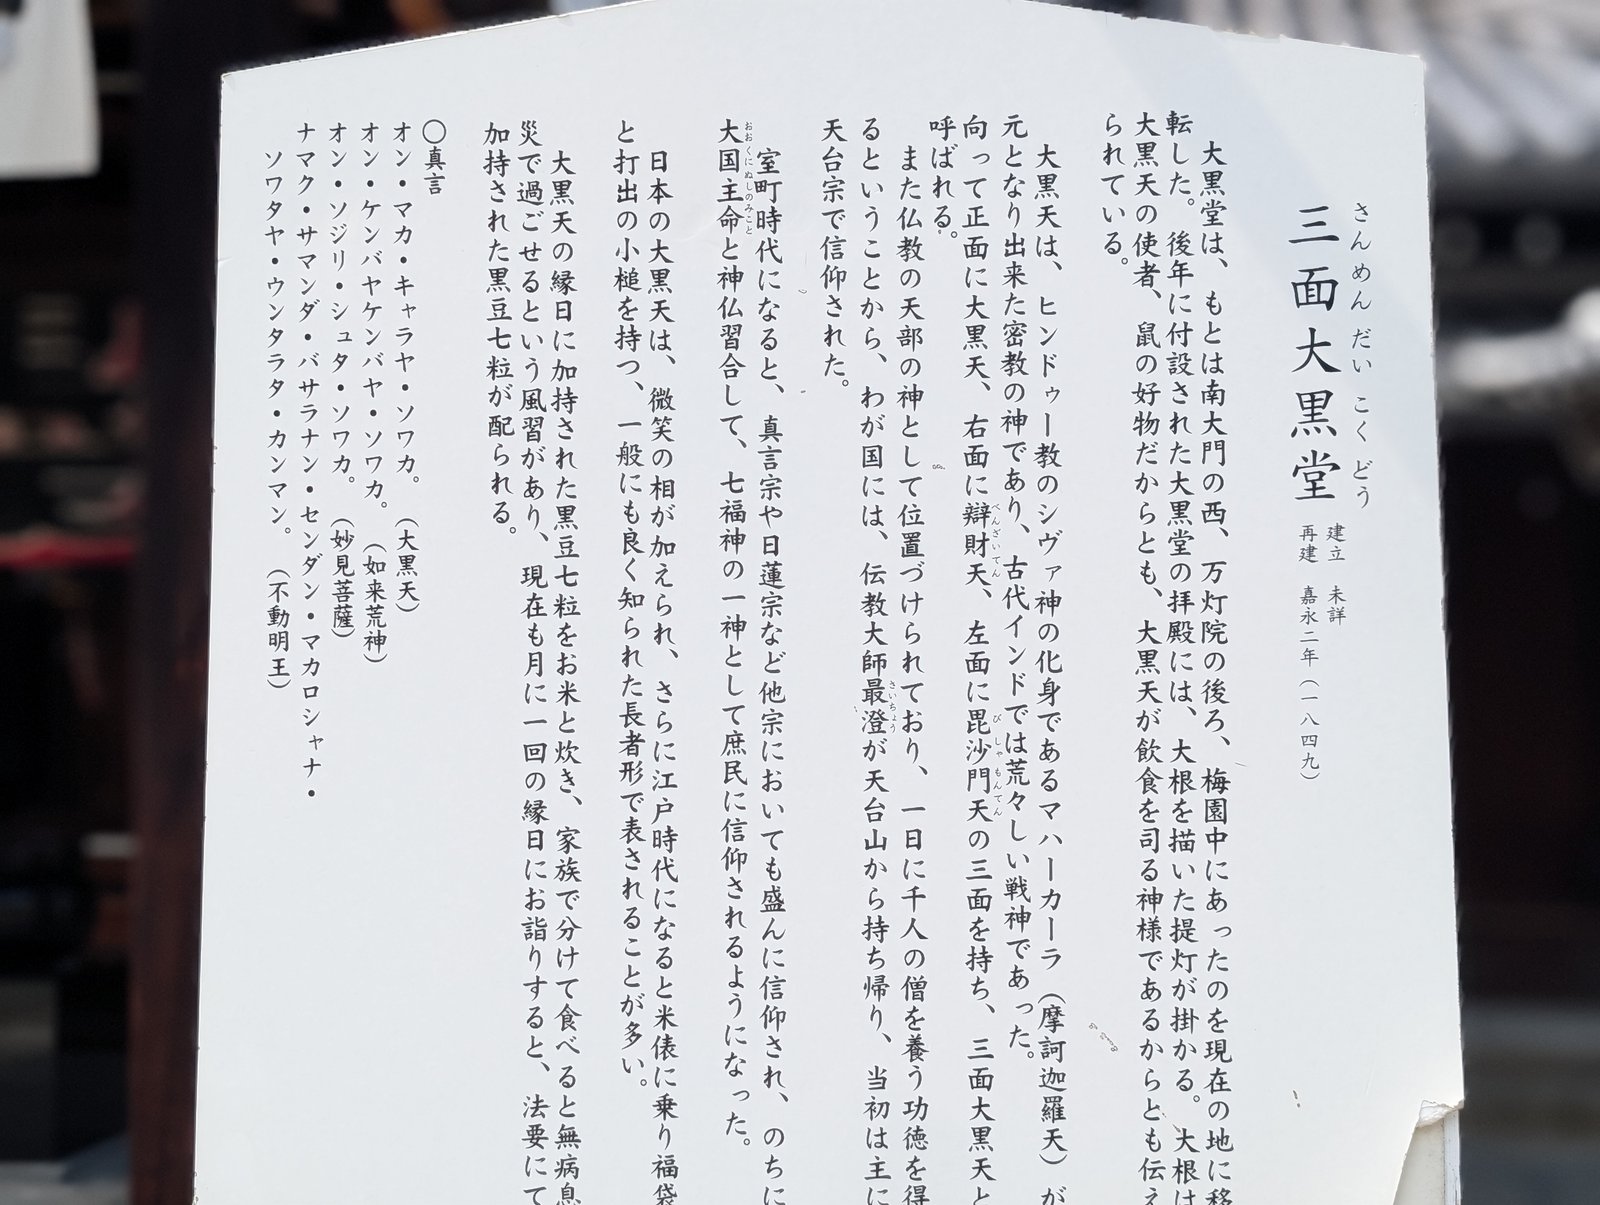 三面大黒堂
さんめんだいこくどう
建立　未詳
再建　嘉永二年（一八四九）
大黒堂は、もとは南大門の西、万灯院の後ろ、梅園中にあったのを現在の地に移
転した。後年に付設された大黒堂の拝殿には、大根を描いた提灯が掛かる。大根は
大黒天の使者、鼠の好物だからとも、大黒天が飲食を司る神様であるからとも伝え
られている。
大黒天は、ヒンドゥー教のシヴァ神の化身であるマハーカーラ（摩訶迦羅天）が
元となり出来た密教の神であり、古代インドでは荒々しい戦神であった。
向って正面に大黒天、右面に辯財天、左面に毘沙門天の三面を持ち、三面大黒天と
べんざいてん
びしゃもんてん
呼ばれる。
また仏教の天部の神として位置づけられており、一日に千人の僧を養う功徳を得
るということから、わが国には、伝教大師最澄が天台山から持ち帰り、当初は主に
さいちょう
天台宗で信仰された。
室町時代になると、真言宗や日蓮宗など他宗においても盛んに信仰され、のちに
大国主命と神仏習合して、七福神の一神として庶民に信仰されるようになった。
おおくにぬしのみこと
日本の大黒天は、微笑の相が加えられ、さらに江戸時代になると米俵に乗り福袋
と打出の小槌を持つ、一般にも良く知られた長者形で表されることが多い。
大黒天の縁日に加持された黒豆七粒をお米と炊き、家族で分けて食べると無病息
災で過ごせるという風習があり、現在も月に一回の縁日にお詣りすると、法要にて
加持された黒豆七粒が配られる。
〇真言
オン・マカ・キャラヤ・ソワカ。（大黒天）
オン・ケンバヤケンバヤ・ソワカ。（如来荒神）
オン・ソジリ・シュタ・ソワカ。（妙見菩薩）
ナマク・サマンダ・バサラナン・センダン・マカロシャナ・
ソワタヤ・ウンタラタ・カンマン。（不動明王）